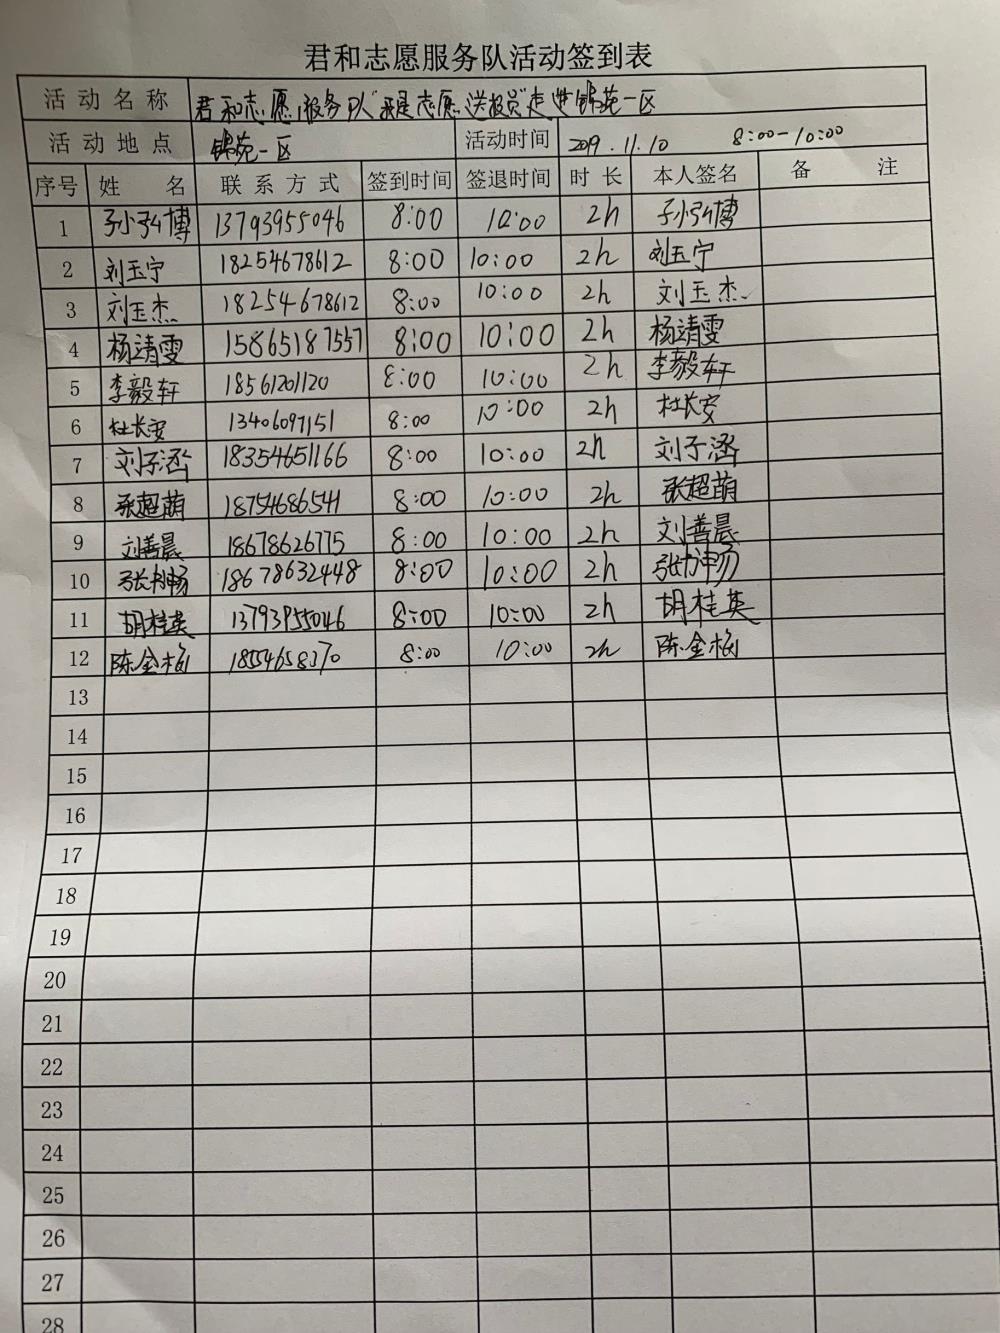 君和志愿服务队活动签到表
活动名称 君和志愿服务队"我是志愿送报员"走进锦苑一区
活动地点 锦苑一区 活动时间 2019.11.10 8:00-10:00
序号 姓名 联系方式 签到时间 签退时间 时长 本人签名 备注
1 孙弘博 13793955046 8:00 10:00 2h 孙弘博
2 刘玉宁 18254678612 8:00 10:00 2h 刘玉宁
3 刘玉杰 18254678612 8:00 10:00 2h 刘玉杰
4 杨靖雯 15865187557 8:00 10:00 2h 杨靖雯
5 李毅轩 18561201120 8:00 10:00 2h 李毅轩
6 杜长安 13406097151 8:00 10:00 2h 杜长安
7 刘子涵 18354651166 8:00 10:00 2h 刘子涵
8 张超萌 18754686541 8:00 10:00 2h 张超萌
9 刘善晨 18678626775 8:00 10:00 2h 刘善晨
10 18678632448 8:00 10:00 2h
11 胡桂英 13793955046 8:00 10:00 2h 胡桂英
12 陈金梅 18554658370 8:00 10:00 2h 陈金梅
13
14
15
16
17
18
19
20
21
22
23
24
25
26
27
28